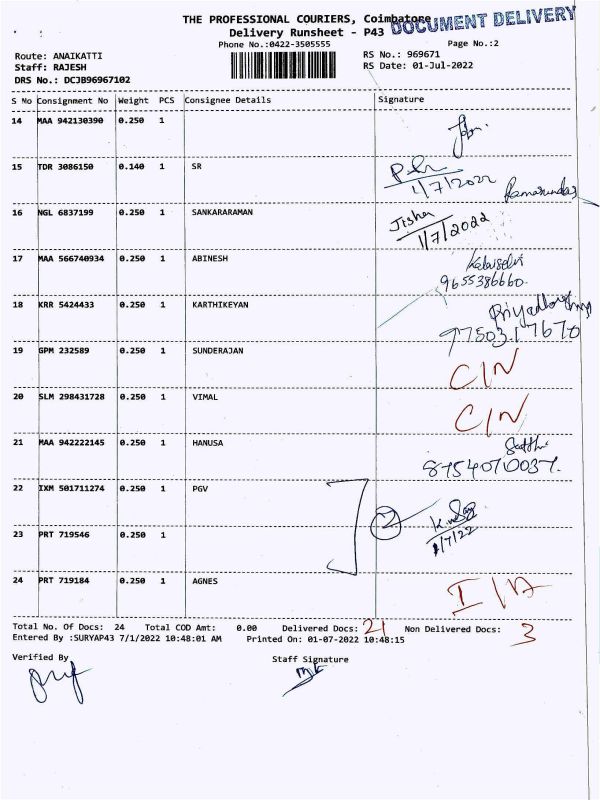 THE PROFESSIONAL COURIERS, Coimbatore
DOCUMENT DELIVERY
Delivery Runsheet - P43
Phone No.:0422-3505555
Page No.:2
Route: ANAIKATTI
RS No.: 969671
Staff: RAJESH
RS Date: 01-Jul-2022
DRS No.: DCJB96967102
S No Consignment No Weight PCS Consignee Details Signature
14 MAA 942130390 0.250 1
15 TDR 3086150 0.140 1 SR
1/7/2022
16 NGL 6837199 0.250 1 SANKARARAMAN Jisha
1/7/2022
17 MAA 566740934 0.250 1 ABINESH Kalaiselvi
9655386660.
18 KRR 5424433 0.250 1 KARTHIKEYAN
97503.17670
19 GPM 232589 0.250 1 SUNDERAJAN C/N
20 SLM 298431728 0.250 1 VIMAL C/N
21 MAA 942222145 0.250 1 HANUSA
8754070037.
22 IXM 501711274 0.250 1 PGV
2
1/7/22
23 PRT 719546 0.250 1
24 PRT 719184 0.250 1 AGNES I/A
Total No. Of Docs: 24 Total COD Amt: 0.00 Delivered Docs: 21 Non Delivered Docs: 3
Entered By :SURYAP43 7/1/2022 10:48:01 AM Printed On: 01-07-2022 10:48:15
Verified By
Staff Signature